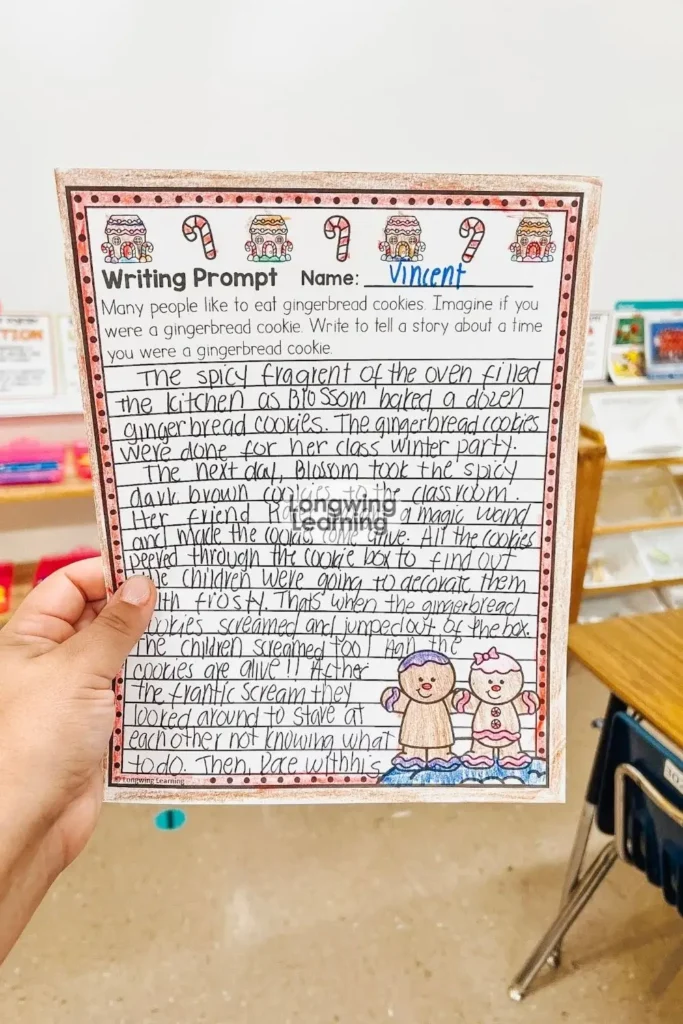 Writing Prompt Name: Vincent
Many people like to eat gingerbread cookies. Imagine if you
were a gingerbread cookie. Write to tell a story about a time
you were a gingerbread cookie.
The spicy fragrent of the oven filled
the kitchen as Blossom baked a dozen
gingerbread cookies. The gingerbread cookies
were done for her class winter party.
The next day, Blosom took the spicy
dark brown cookies to the classroom.
Longwing
Learning
Her friend a magic wand
and made the cookies come alive. All the cookies
peeved through the cookie box to find out
the children were going to decorate them
with frosty. That's when the gingerbread
cookies screamed and jumped out of the box.
The children screamed too! the
cookies are alive!! After
the frantic scream they
looked around to stave at
each other not knowing what
to do. Then,
© Longwing Learning